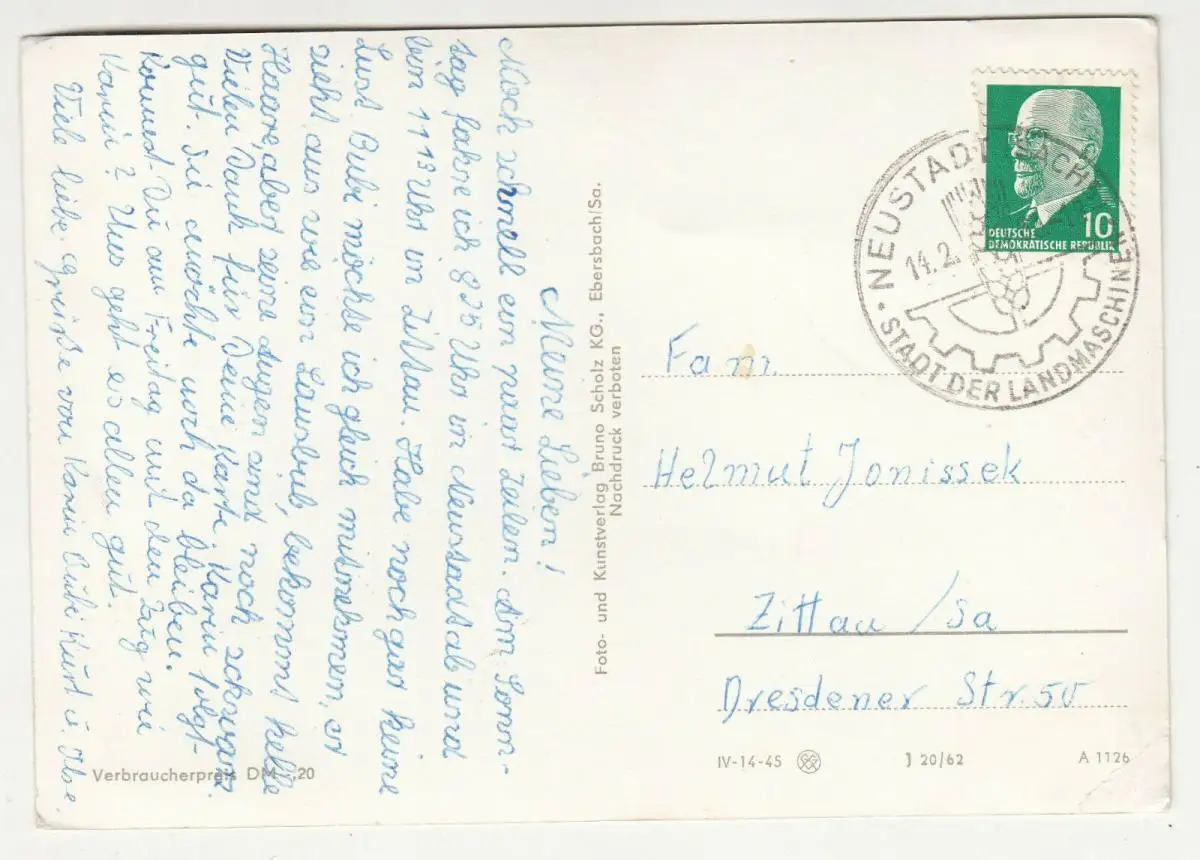 Meine Lieben!
Noch schnell ein paar Zeilen. Am Sonn-
tag fahre ich 8 25 Uhr in Neustadt ab und
bin 11 13 Uhr in Zittau. Habe noch gar keine
Lust. Bubi möchte ich gleich mitnehmen, er
sieht aus wie ein Lausbub, bekommt helle
Haare, aber seine Augen sind noch schwarz.
Vielen Dank für Deine Karte. Karin folgt
gut. Sie möchte noch da bleiben.
Kommst Du am Freitag mit den Zug wie
Karin? Uns geht es allen gut.
Viele liebe Grüsse von Karin Bubi Kurt u. Ilse.
Verbraucherpreis DM -,20
Foto- und Kunstverlag Bruno Scholz KG., Ebersbach/Sa.
Nachdruck verboten
DEUTSCHE
DEMOKRATISCHE REPUBLIK
10
NEUSTADT SACH
14.2.
STADT DER LANDMASCHINEN
Fam.
Helmut Jonissek
Zittau /Sa
Dresdener Str. 50
IV-14-45
J 20/62
A 1126